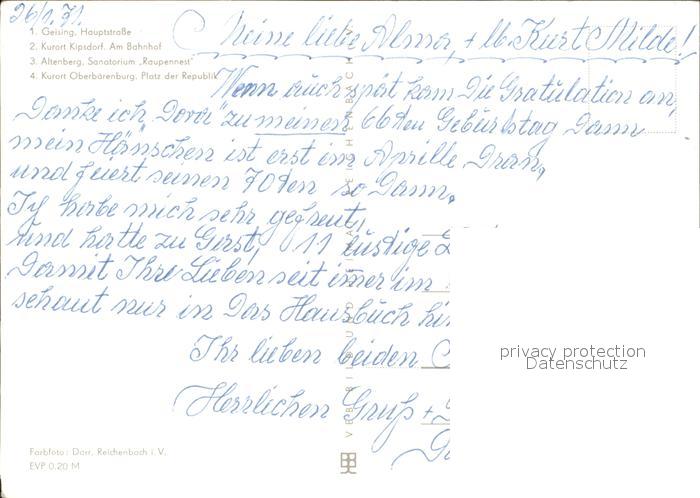 26/1.71.
1. Geising, Hauptstraße
2. Kurort Kipsdorf. Am Bahnhof
3. Altenberg, Sanatorium „Raupennest"
4. Kurort Oberbärenburg, Platz der Republik
Meine liebe Alma, + lb. Kurt Milde!
Wenn auch spät kam Die Gratulation an,
Danke ich, Dora" zu meinen 66ten Geburtstag Dann
mein Hänschen ist erst im Aprille Dran,
und feiert seinen 70ten so Dann.
Ich habe mich sehr gefreut,
und hatte zu Gast, 11 lustige
Damit Ihr Lieben seit imer im
schaut nur in Das Hausbuch
Ihr lieben beiden
Herrlichen Gruß +
privacy protection
Datenschutz
Farbfoto: Darr, Reichenbach i. V.
EVP 0.20 M
VEB BILD UND HEIMAT REICHENBACH